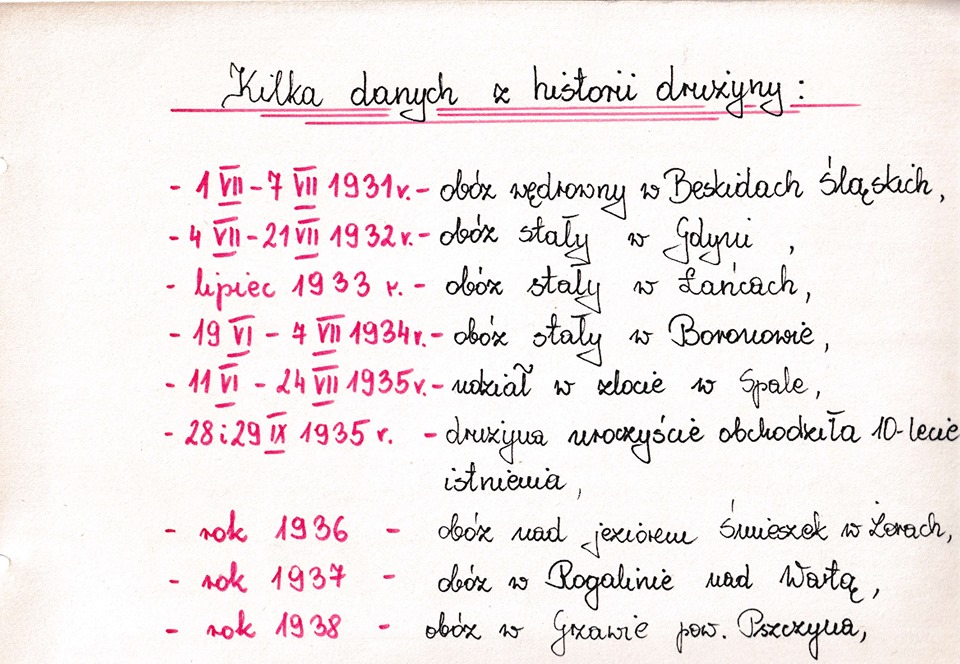 Kilka danych z historii drużyny :
- 1 VII - 7 VII 1931 r. - obóz wędrowny w Beskidach Śląskich,
- 4 VII - 21 VII 1932 r. - obóz stały w Gdyni ,
- lipiec 1933 r. - obóz stały w Łańcach,
- 19 VI - 7 VII 1934 r. - obóz stały w Boronowie,
- 11 VI - 24 VII 1935 r. - udział w zlocie w Spale,
- 28 i 29 IX 1935 r. - drużyna uroczyście obchodziła 10-lecie
istnienia,
- rok 1936 - obóz nad jeziorem Śmieszek w Żorach,
- rok 1937 - obóz w Rogalinie nad Wartą,
- rok 1938 - obóz w Grzawie pow. Pszczyna,